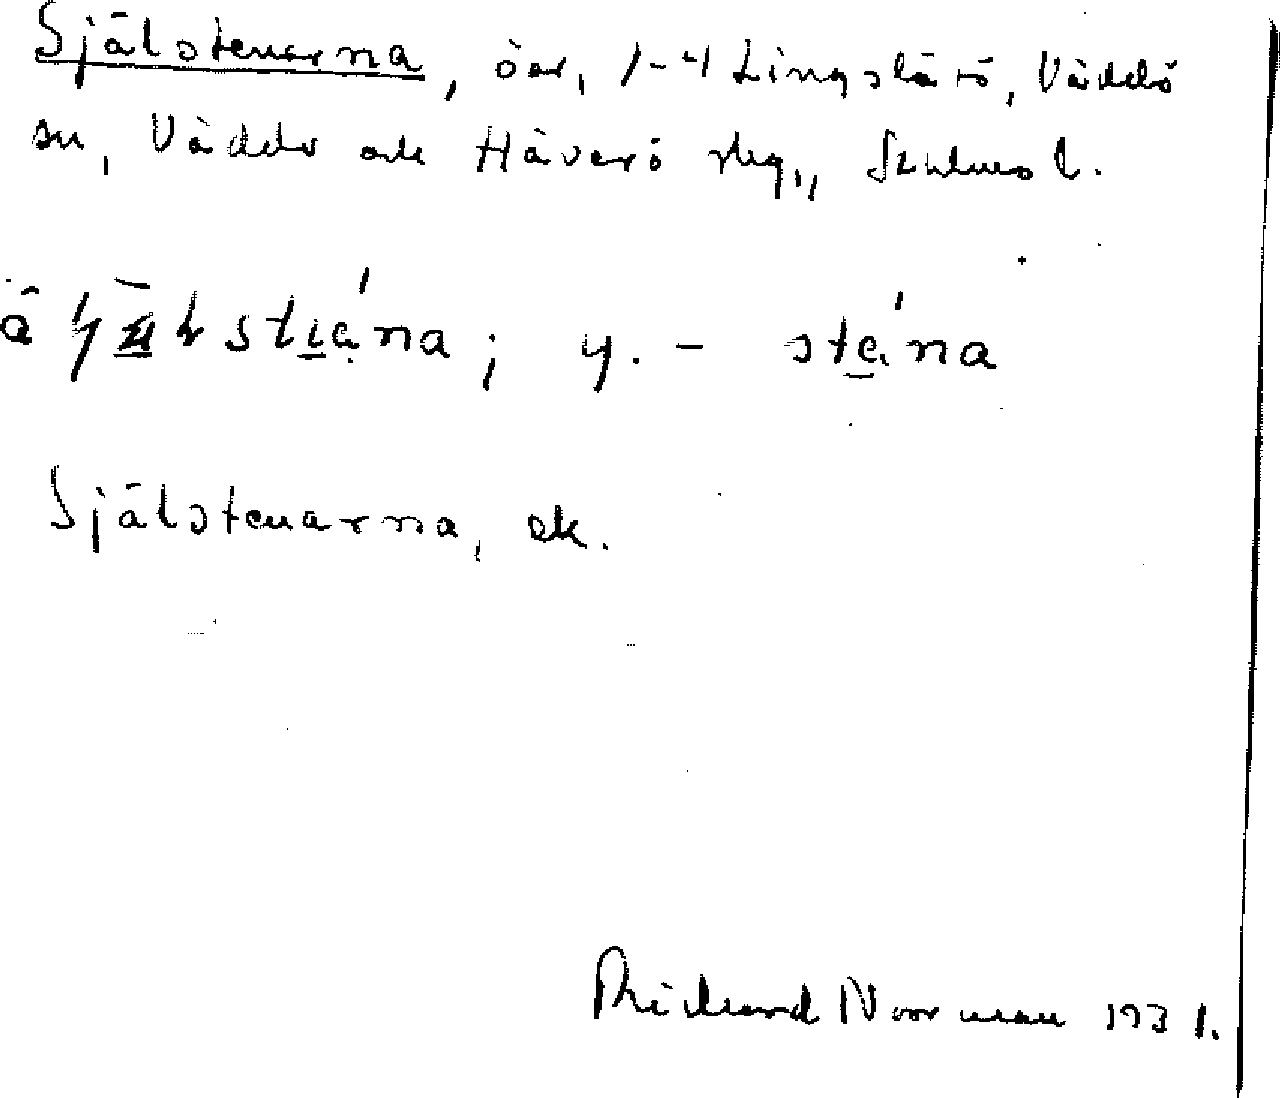 Själstenarna, öar, 1-4 Lingslätö, Väddö
sn, Väddö och Häverö skg., Stockholms l.
stiana; y. - stena
Själstenarna, ek.
Rickard Norrman 1931.